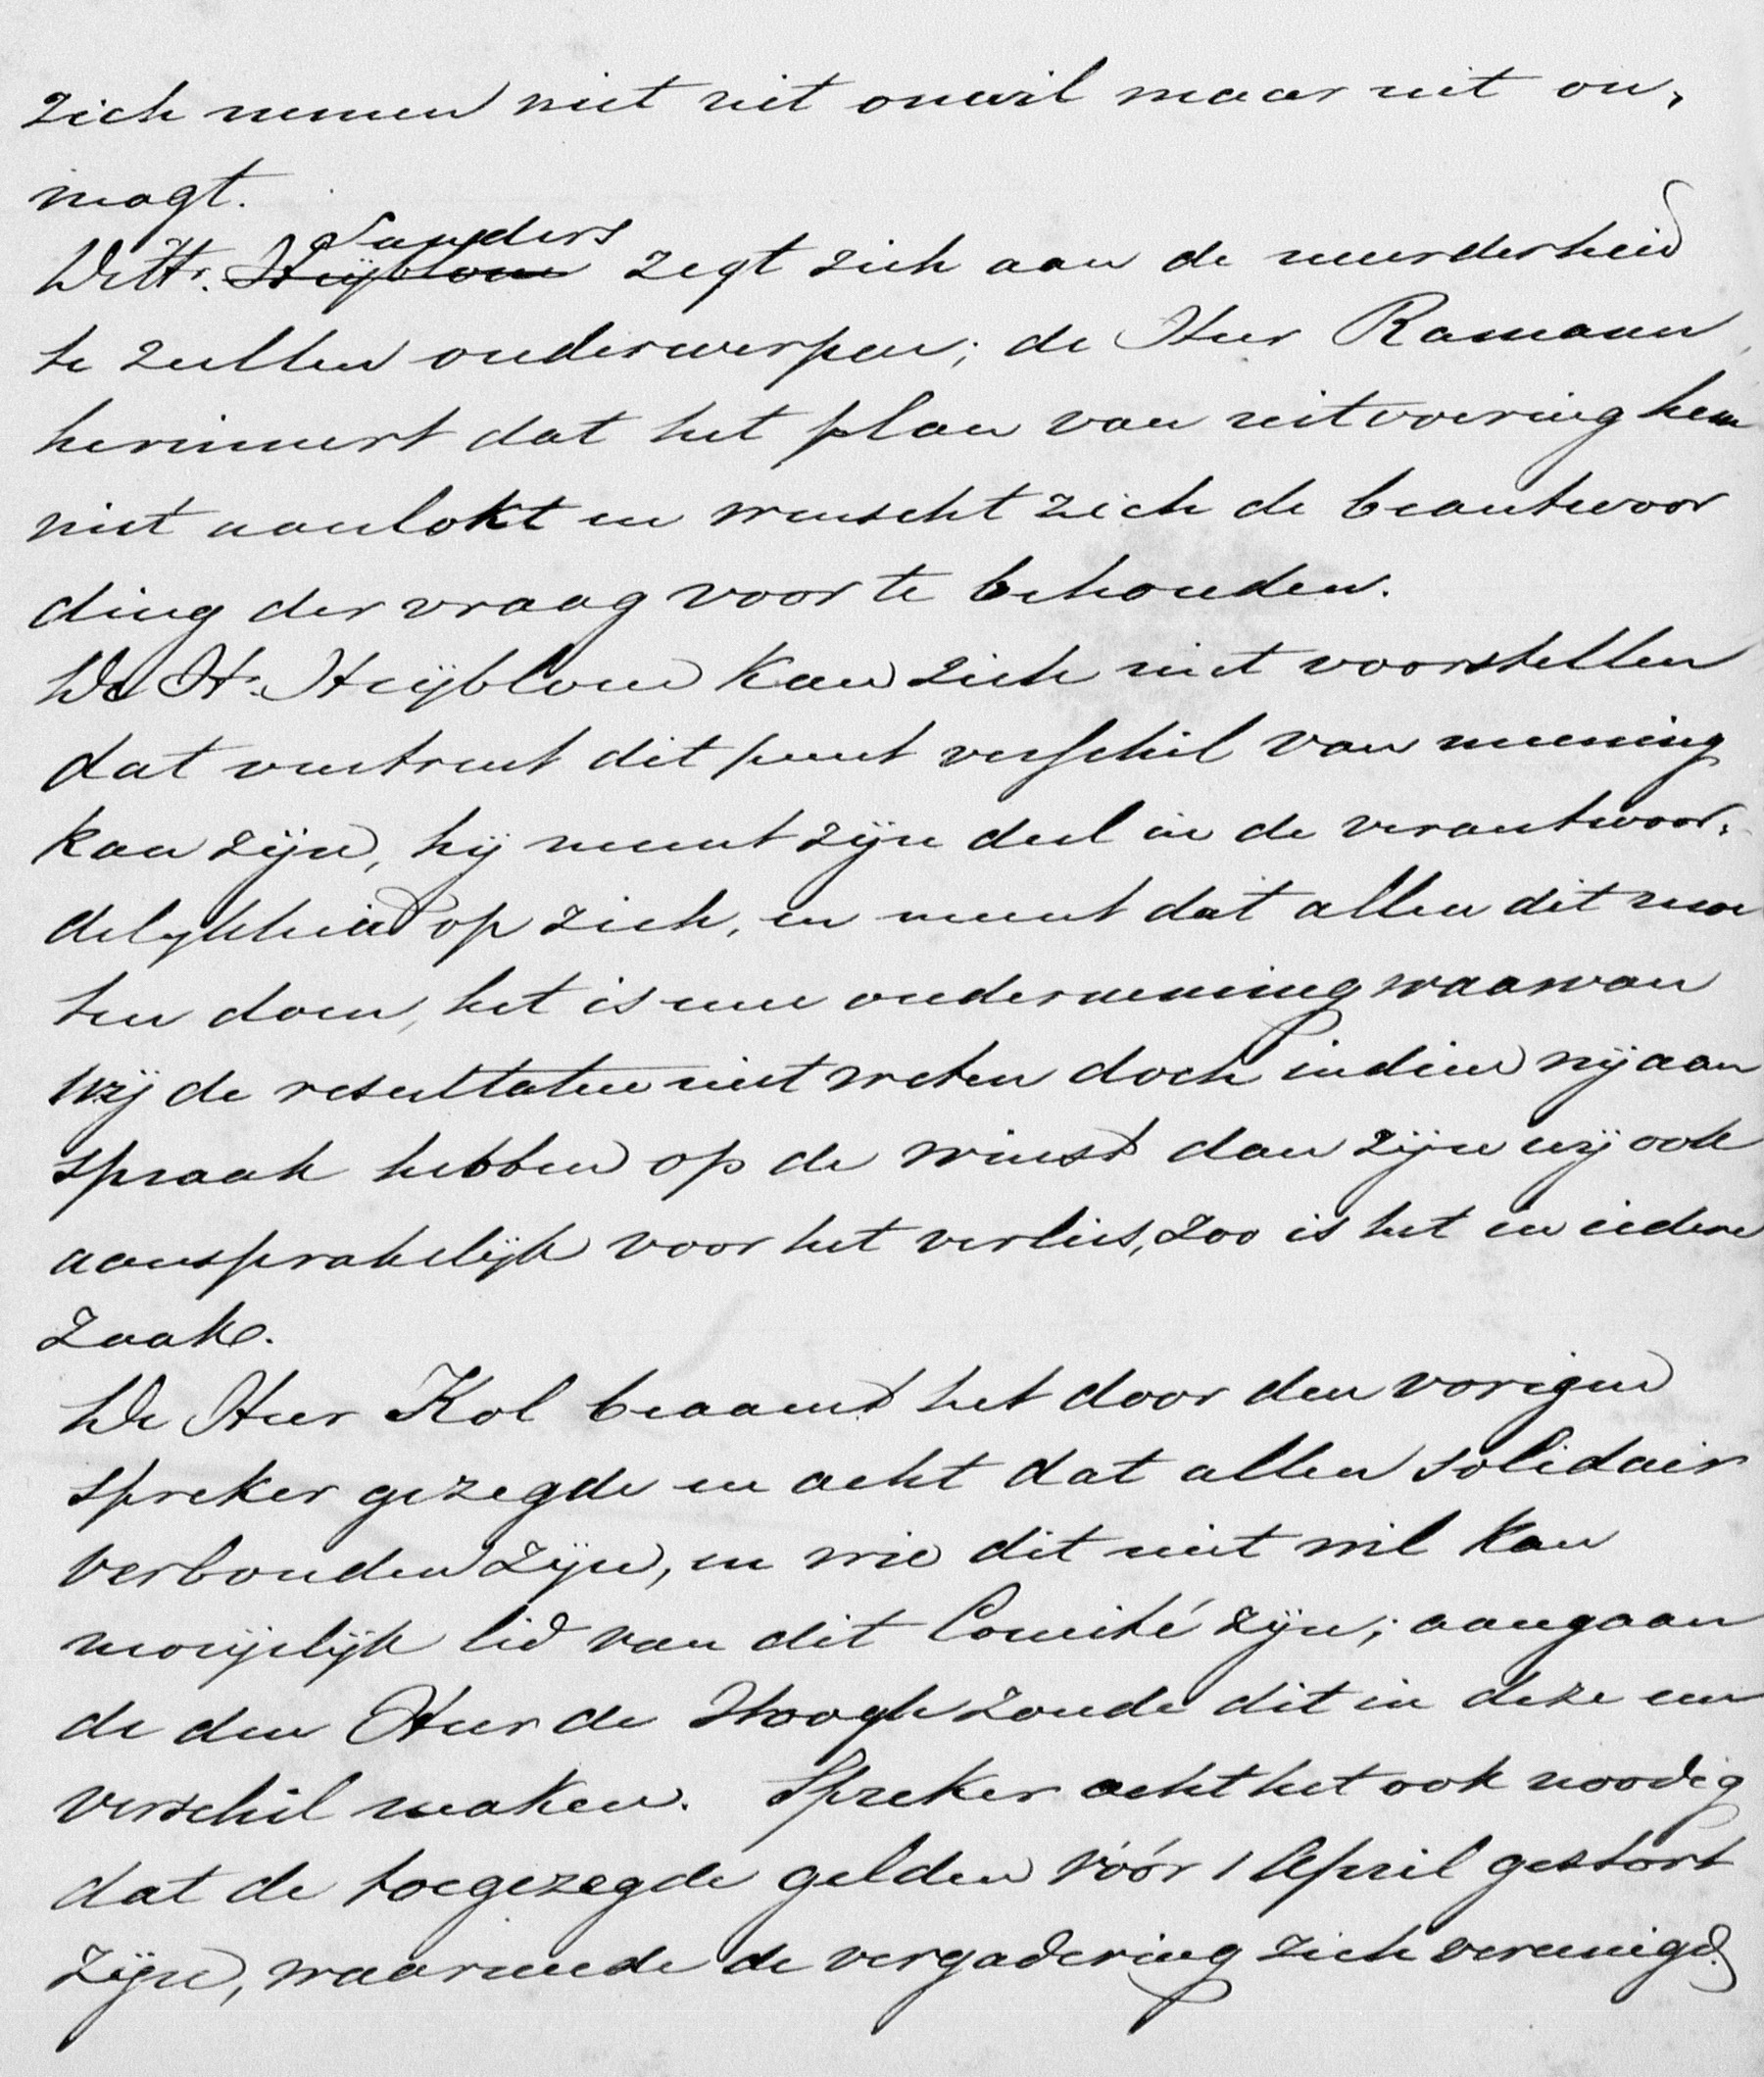 zich nemen niet uit onwil maar uit on,
magt.
De Hr. Heijblom Sanders zegt zich aan de meerderheid
te zullen onderwerpen; de Heer Ramann
herinnert dat het plan van uitvoering hem
niet aanlokt en wenscht zich de beantwoor
ding der vraag voor te behouden.
De Hr. Heijblom kan zich niet voorstellen
dat omtrent dit punt verschil van meening
kan zijn, hij neemt zijn deel in de verantwoor,
delykheid op zich, en meent dat allen dit moe
ten doen, het is eene onderneming waarvan
wij de resultaten niet weten doch indien wij aan
spraak hebben op de winst dan zijn wij ook
aansprakelijk voor het verlies, zoo is het in iedere
zaak.
De Heer Kol beaamt het door den vorigen
spreker gezegde en acht dat allen solidair
verbonden zijn, en wie dit niet wil kan
moeijelijk lid van dit Comité zijn; aangaan
de den Heer de Hoogh zoude dit in deze een
verschil maken. Spreker acht het ook noodig
dat de toegezegde gelden vóór 1 April gestort
zijn, waarmede de vergadering zich vereenigd.